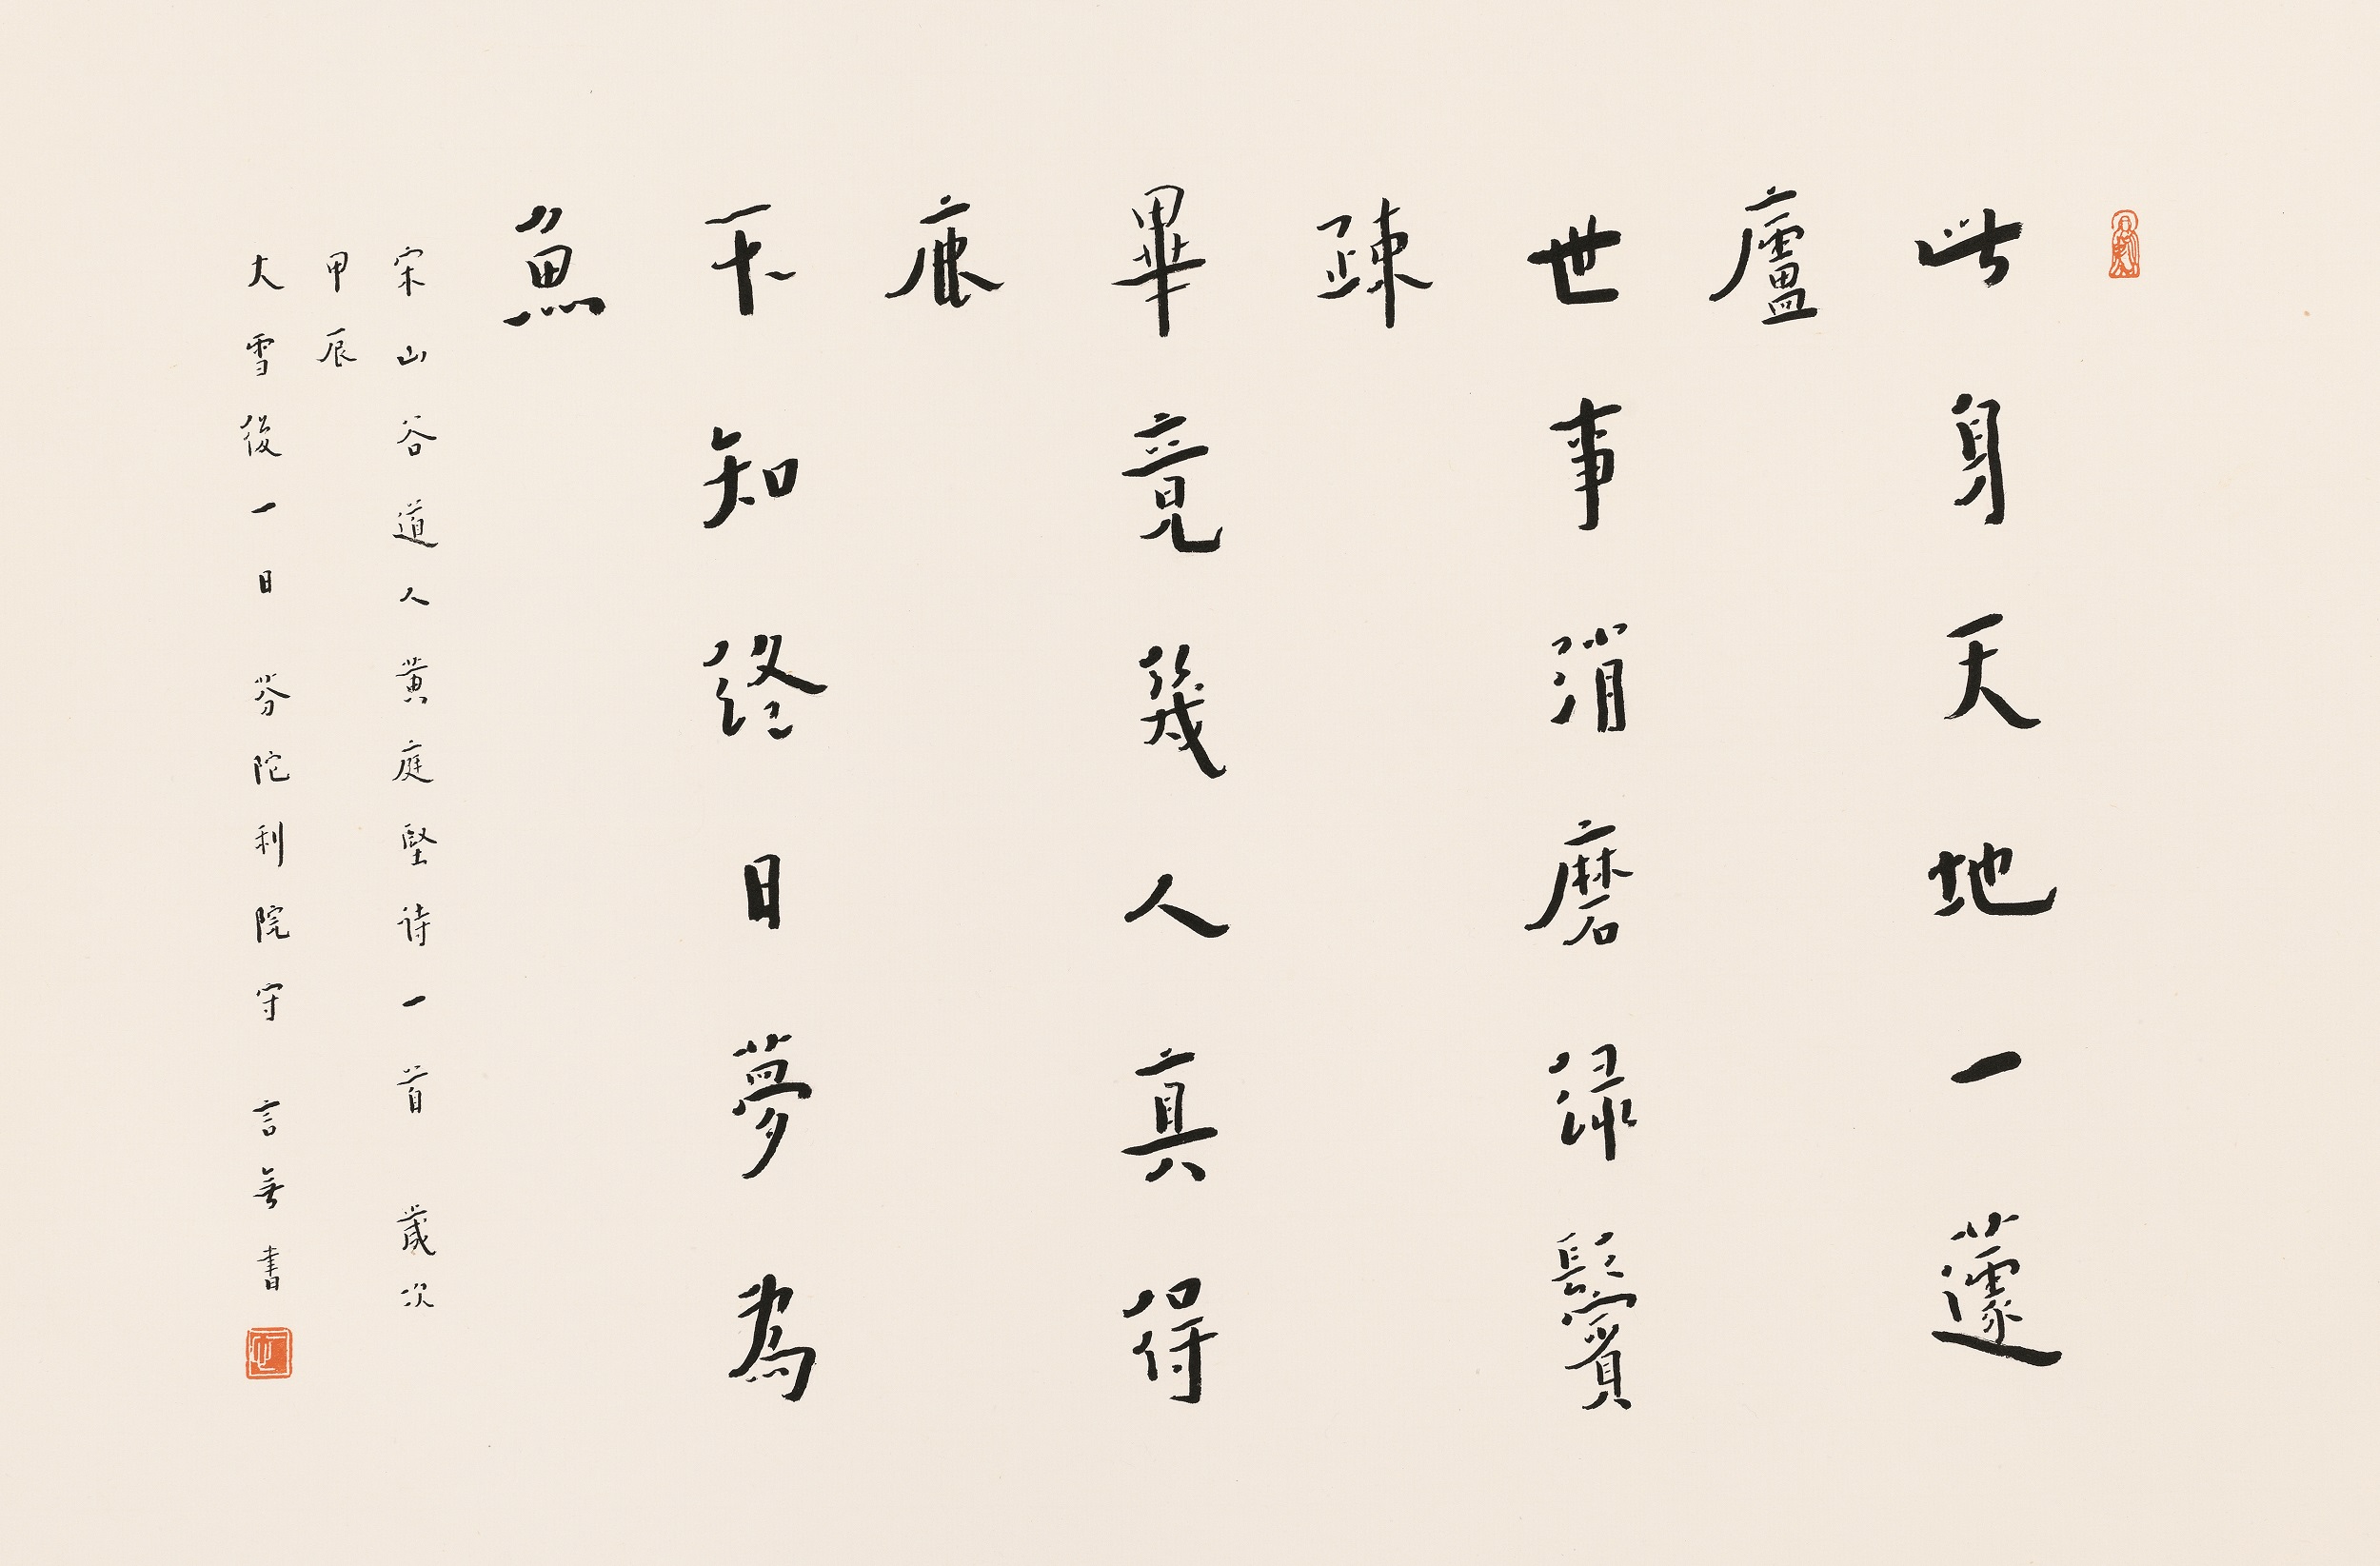 此身天地一蘧
廬
世事消磨綠鬢
疎
畢竟幾人真得
鹿
不知終日夢為
魚
宋山谷道人黃庭堅詩一首 歲次
甲辰
大雪後一日 芬陀利院守 言無書